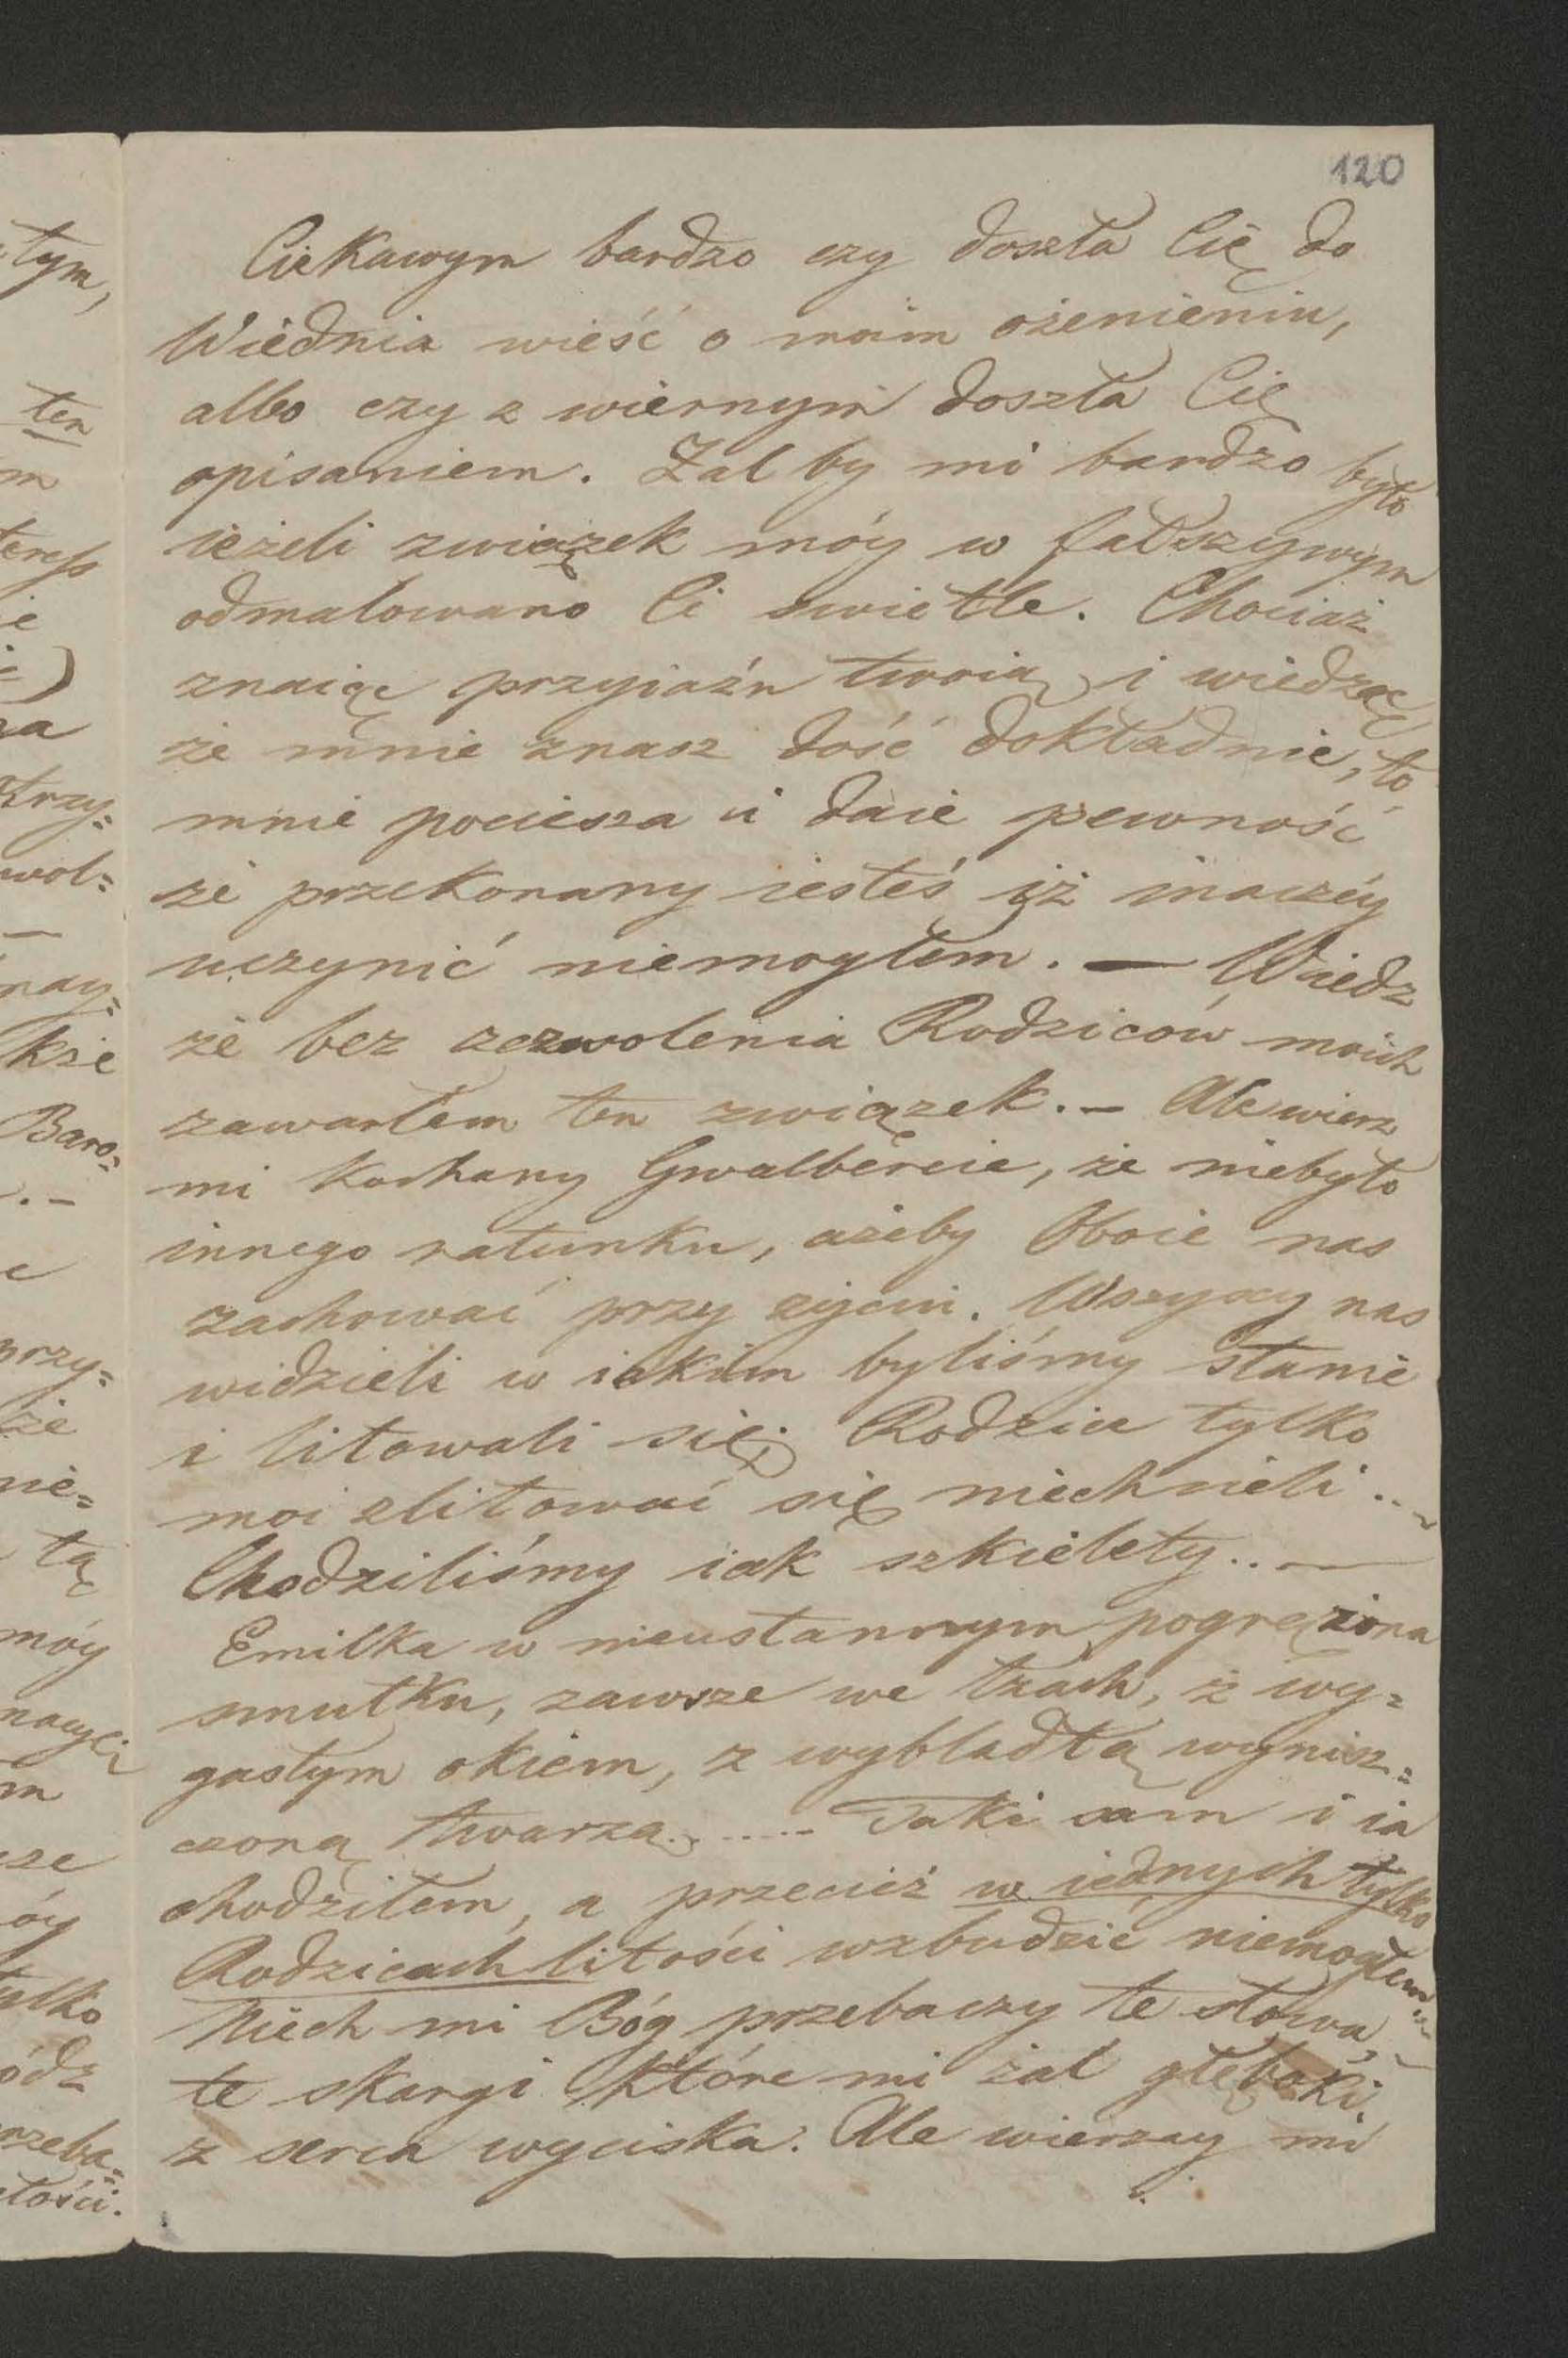 120
Ciekawym bardzo czy doszła Cię do
Wiednia wieść o moim ożenieniu,
albo czy z wiernym doszła Cię
opisaniem. Żal by mi bardzo było
ieżeli związek móy w fałszywym
odmalowano Ci swietle. Chociaż
znaiąc przyiaźń twoią i wiedząc
że mnie znasz dość dokładnie, to
mnie pociesza i daie pewność
że przekonany iesteś iż inaczéy
uczynić niemogłem. — Wiedz
że bez zezwolenia Rodziców moich
zawarłem ten związek. — Ale wierz
mi kochany Gwalbercie, że niebyło
innego ratunku, ażeby Oboie nas
zachować przy życiu. Wszyscy nas
widzieli w iakim byliśmy stanie
i litowali się; Rodzice tylko
moi zlitować się niechcieli ...
Chodziliśmy iak szkielety.. —
Emilka w nieustannym pogrężona
smutku, zawsze we łzach, z wy=
gasłym okiem, z wybladłą wynisz=
czoną twarzą...... Taki sam i ia
chodziłem, a przecież w iednych tylko
Rodzicach litości wzbudzić niemogłem...
Niech mi Bóg przebaczy te słowa,
te skargi które mi żal głęboki
z serca wyciska. Ale wierzay mi
tym,
ten
m
teress
ie
)
trzy=
wol=
—
nay=
kże
Baro=
. —
przy=
że
nie=
tą
móy
m
sze
óy
tylko
ódz
rzeba=
łości.